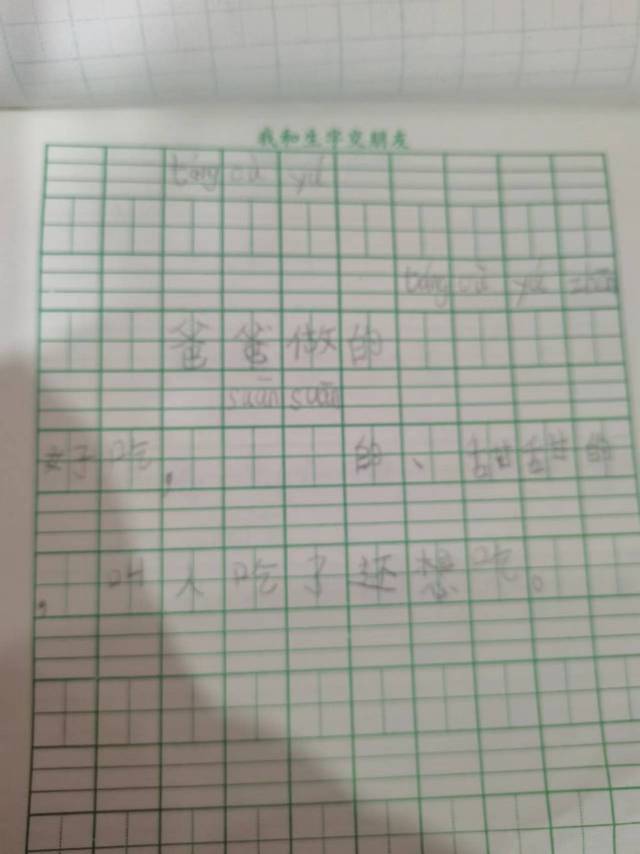 我和生字交朋友
táng cù yú
táng cù yú zhēn
爸爸做的
suān suān
好吃, 的、甜甜的
, 叫人吃了还想吃。